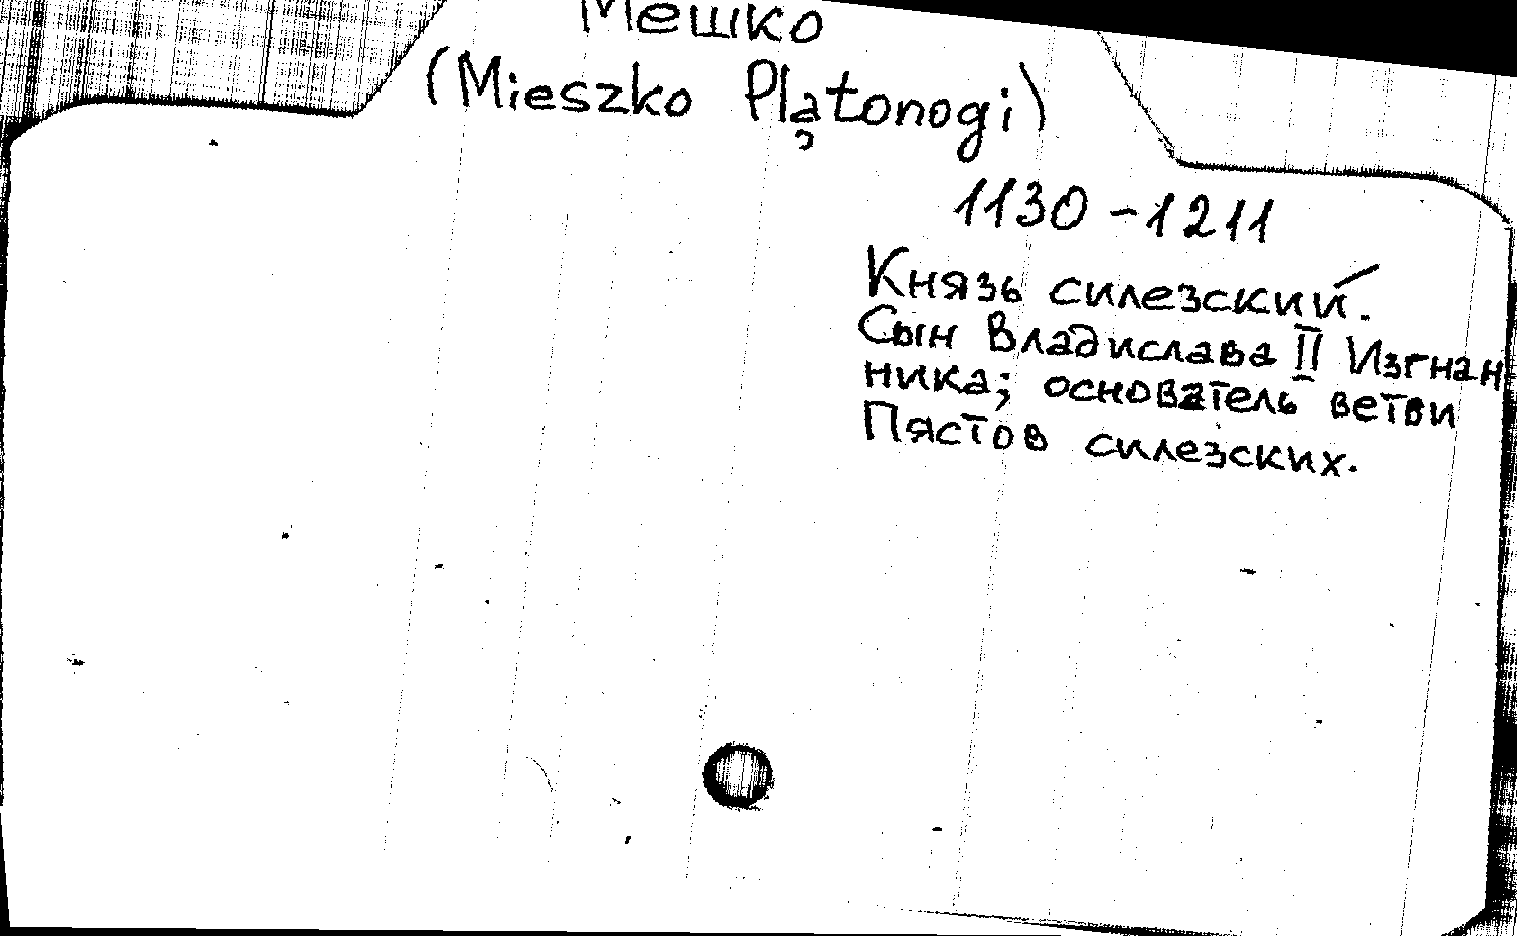 Мешко
(Mieszko Plątonogi)
1130-1211
Князь силезский.
Сын Владислава II Изгнан
ника; основатель ветви
Пястов силезских.